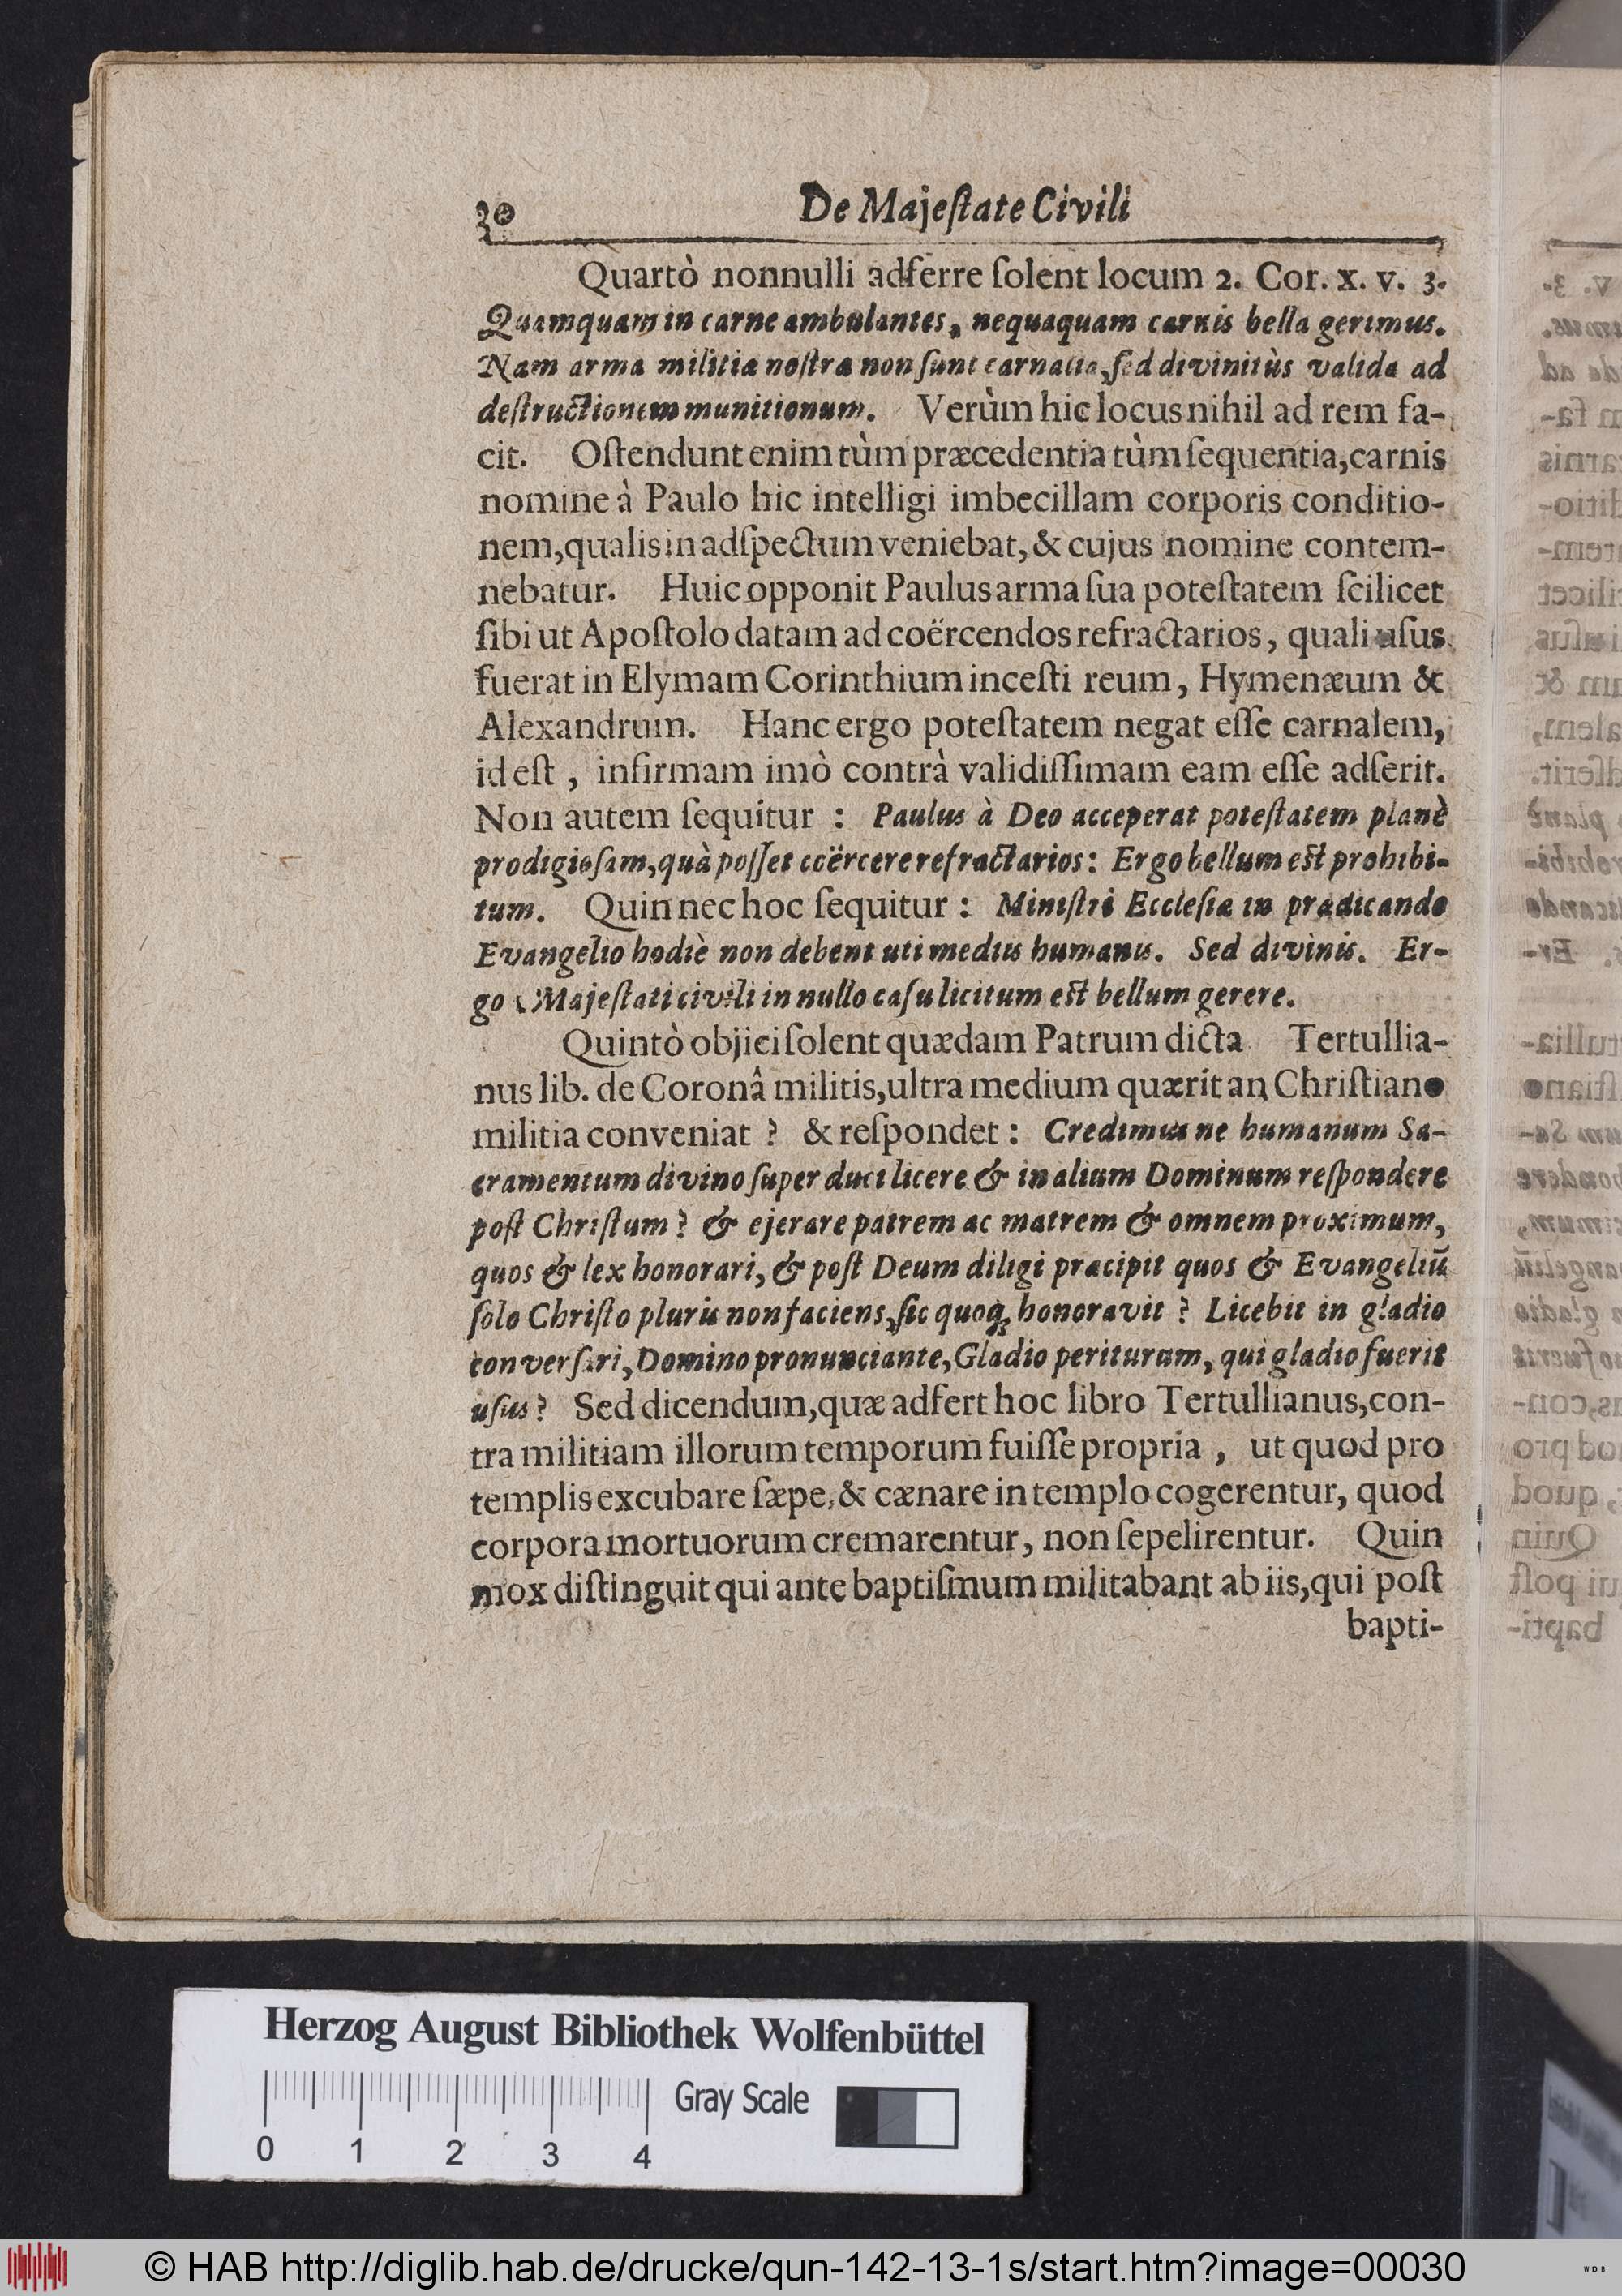 30 De Majeſtate Civili
Quartò nonnulli adferre ſolent locum 2. Cor. x. v. 3.
Quamquam in carne ambulantes, nequaquam carnis bella gerimus.
Nam arma militiæ noſtræ non ſunt carnalia, ſed divinitùs valida ad
deſtructionem munitionum. Verùm hic locus nihil ad rem fa-
cit. Oſtendunt enim tùm præcedentia tùm ſequentia, carnis
nomine à Paulo hic intelligi imbecillam corporis conditio-
nem, qualis in adſpectum veniebat, & cujus nomine contem-
nebatur. Huic opponit Paulus arma ſua poteſtatem ſcilicet
ſibi ut Apoſtolo datam ad coërcendos refractarios, quali uſus
fuerat in Elymam Corinthium inceſti reum, Hymenæum &
Alexandrum. Hanc ergo poteſtatem negat eſſe carnalem,
id eſt, infirmam imò contrà validiſſimam eam eſſe adſerit.
Non autem ſequitur : Paulus à Deo acceperat poteſtatem planè
prodigioſam, quà poſſet coërcere refractarios: Ergo bellum eſt prohibi-
tum. Quin nec hoc ſequitur : Miniſtri Eccleſiæ in prædicando
Evangelio hodiè non debent uti mediis humanis. Sed divinis. Er-
go Majeſtati civili in nullo caſu licitum eſt bellum gerere.
Quintò objici ſolent quædam Patrum dicta Tertullia-
nus lib. de Coronâ militis, ultra medium quærit an Chriſtiano
militia conveniat ? & reſpondet : Credimus ne humanum Sa-
cramentum divino ſuper duci licere & in alium Dominum reſpondere
poſt Chriſtum ? & ejerare patrem ac matrem & omnem proximum,
quos & lex honorari, & poſt Deum diligi præcipit quos & Evangeliũ
ſolo Chriſto pluris non faciens, ſic quoq; honoravit ? Licebit in gladio
converſari, Domino pronunciante, Gladio periturum, qui gladio fuerit
uſus ? Sed dicendum, quæ adfert hoc libro Tertullianus, con-
tra militiam illorum temporum fuiſſe propria, ut quod pro
templis excubare ſæpe, & cænare in templo cogerentur, quod
corpora mortuorum cremarentur, non ſepelirentur. Quin
mox diſtinguit qui ante baptiſmum militabant ab iis, qui poſt
bapti-
Herzog August Bibliothek Wolfenbüttel
Gray Scale
0 1 2 3 4
© HAB http://diglib.hab.de/drucke/qun-142-13-1s/start.htm?image=00030
WDB